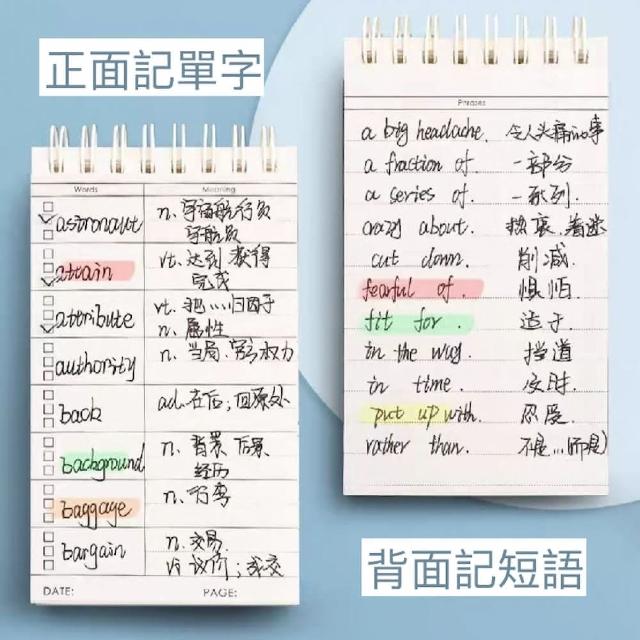 正面記單字
Words Meaning
astronaut n. 宇宙航行员
宇航员
attain vt. 达到 获得
完成
attribute vt. 把…归因于
n. 属性
authority n. 当局 权力
back ad. 在后;回原处
background n. 背景 后景
经历
baggage n. 行李
bargain n. 交易
vi 议价;成交
DATE: PAGE:
Phrases
a big headache. 令人头痛的事
a fraction of. 一部分
a series of. 一系列.
crazy about. 热衷.着迷
cut down. 削减.
fearful of. 惧怕.
fit for. 适于.
in the way. 挡道
in time. 及时.
put up with. 忍受.
rather than. 不是…(而是)
背面記短語